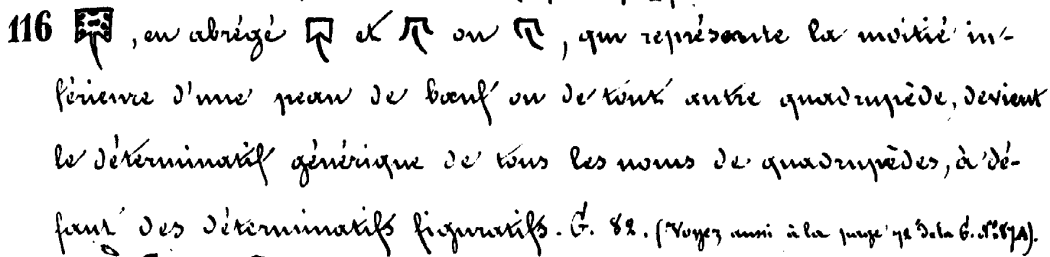 116 , en abrégé et ou , qui représente la moitié in-
férieure d'une peau de bœuf ou de tout autre quadrupède, devient
le déterminatif générique de tous les noms de quadrupèdes, à dé-
faut des déterminatifs figuratifs. G. 82. (Voyez aussi à la page de la G. N°